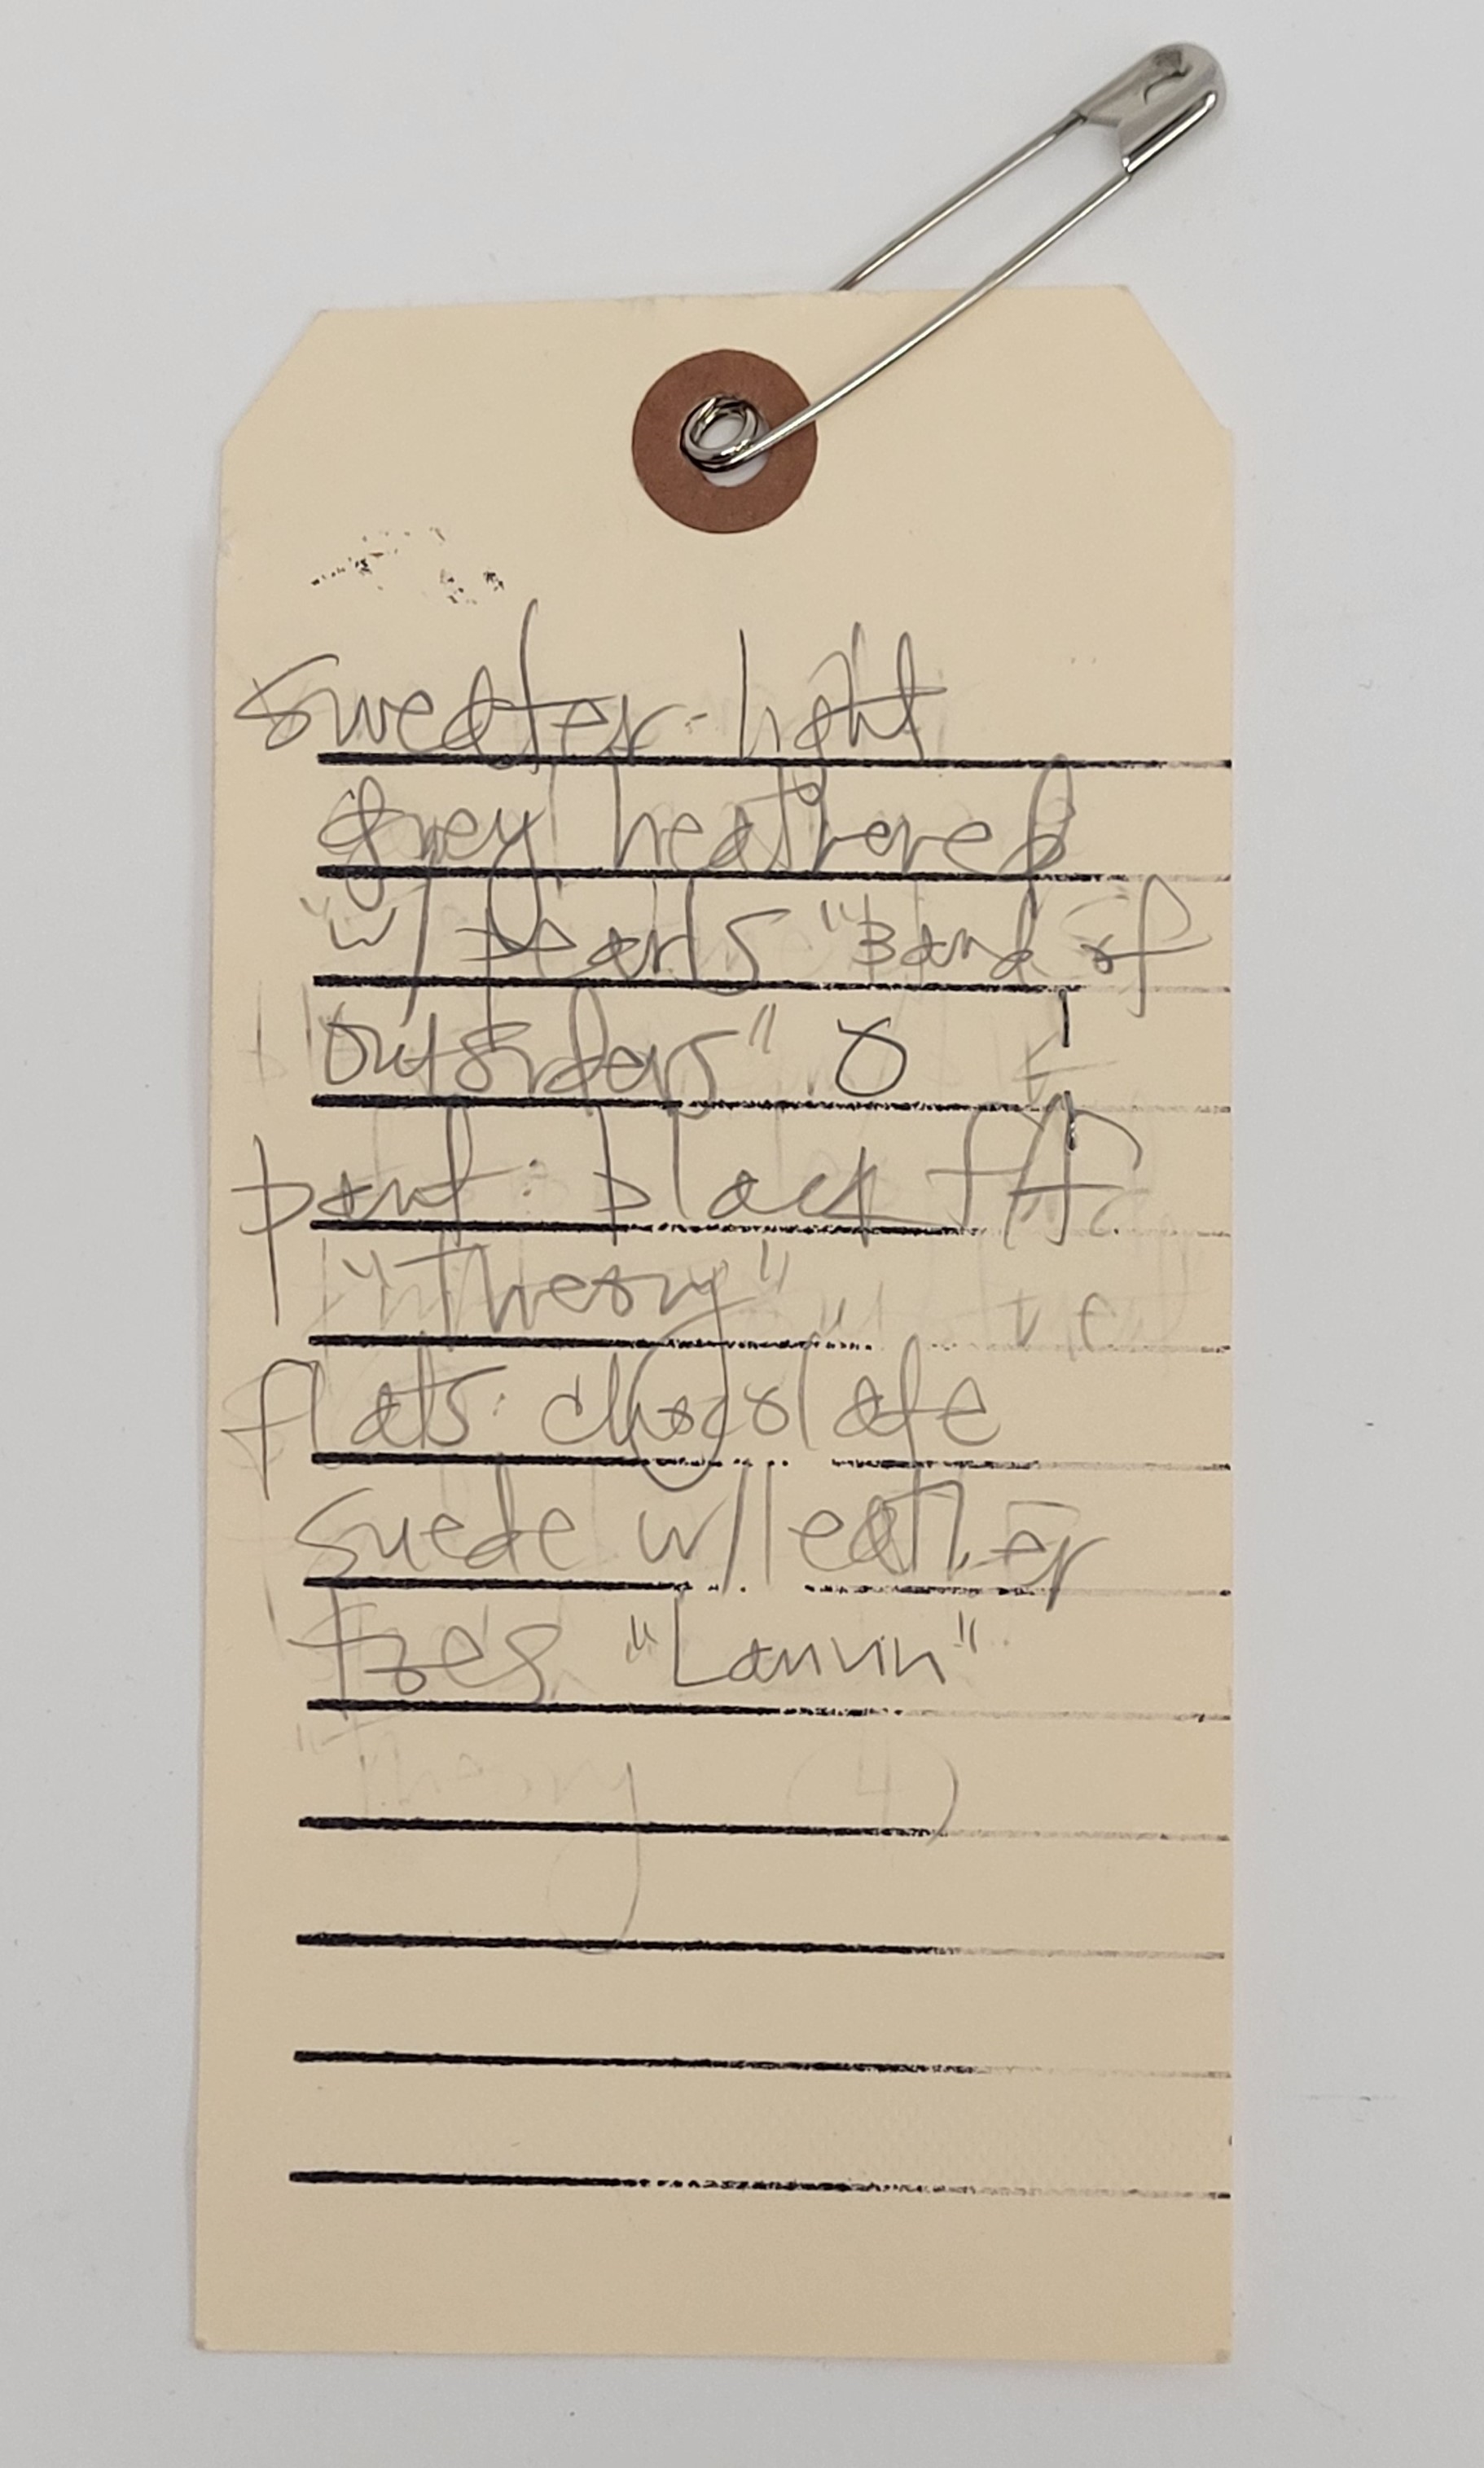 sweater - light
grey heathered
w/ pearls "Band of
outsiders"
pant: black
"Theory"
flats: chocolate
suede w/leather
toes "Lanvin"
"Theory (4)